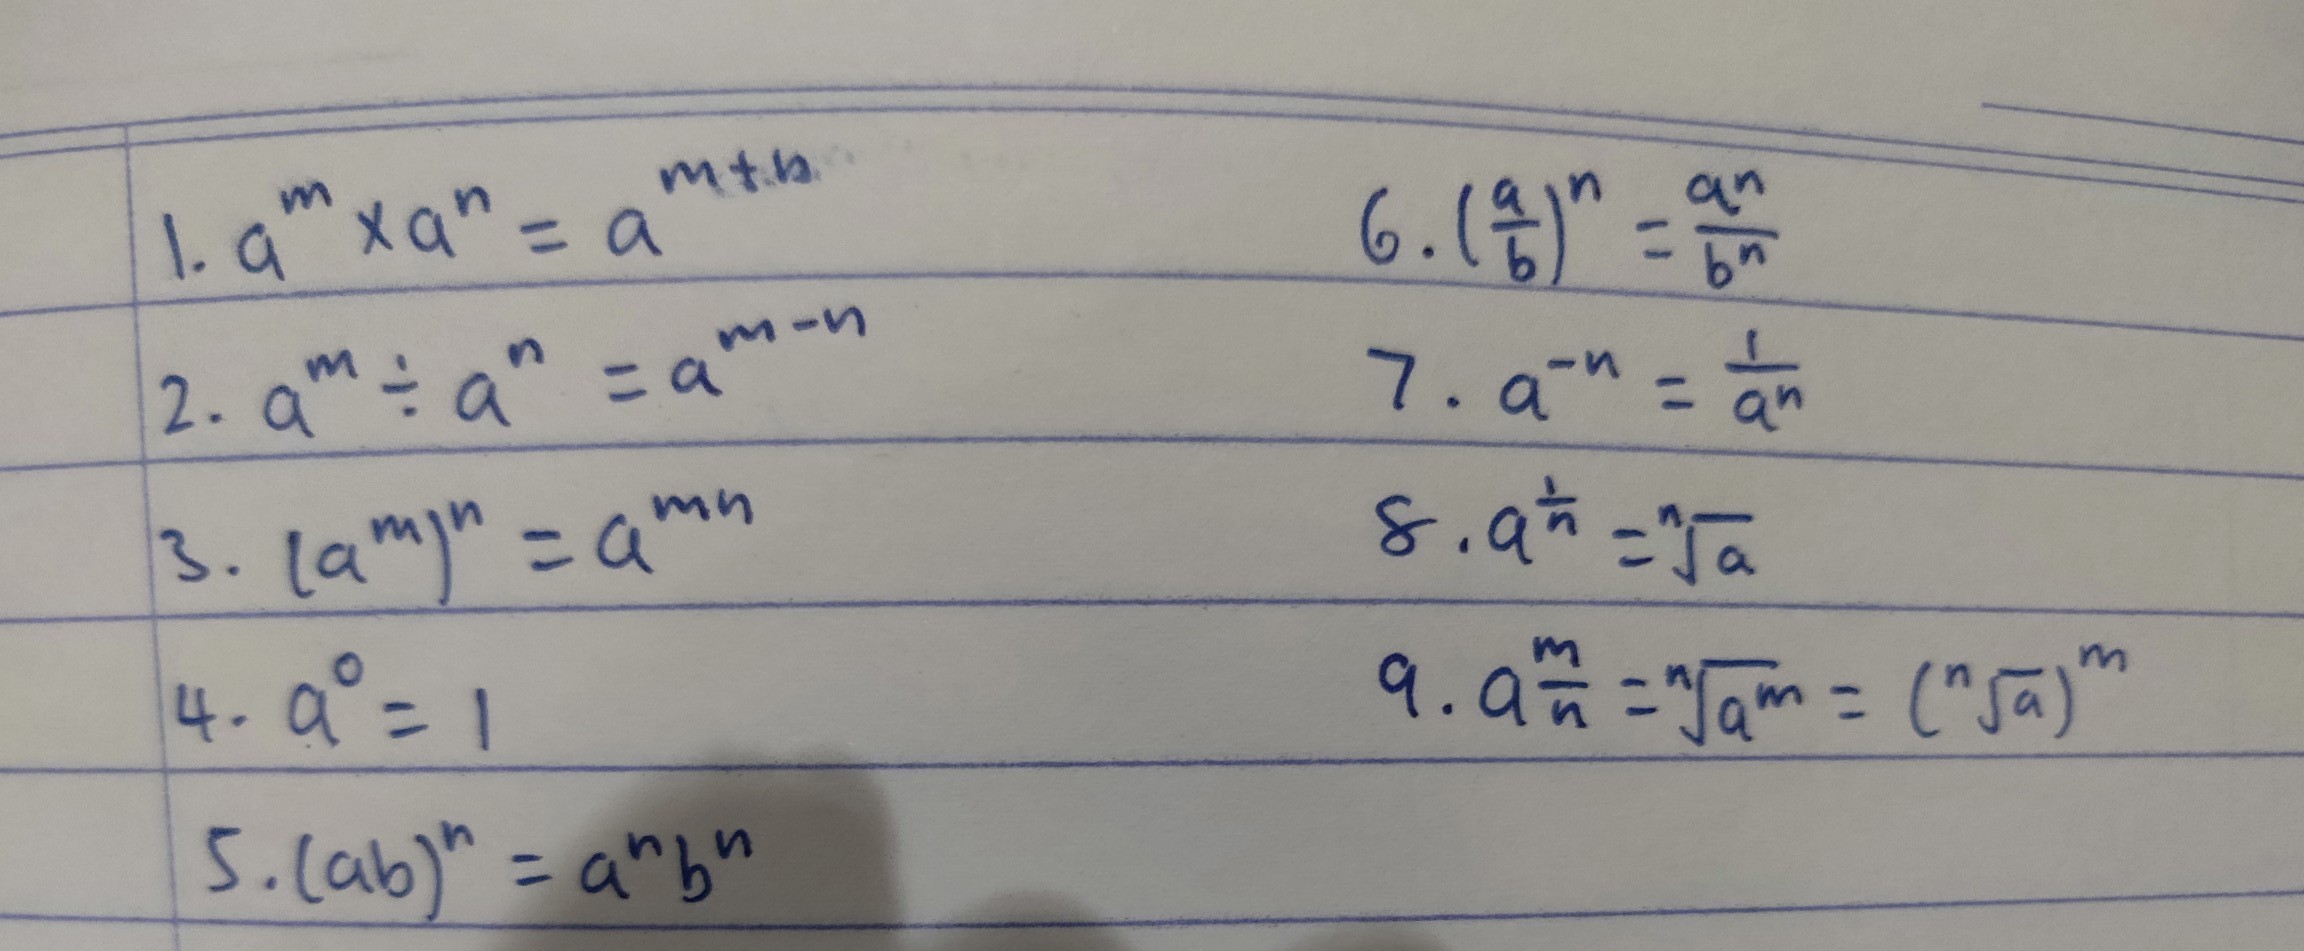 1. a^m × a^n = a^{m+n}
2. a^m ÷ a^n = a^{m-n}
3. (a^m)^n = a^{mn}
4. a^0 = 1
5. (ab)^n = a^n b^n
6. (a/b)^n = a^n/b^n
7. a^{-n} = 1/a^n
8. a^{1/n} = ⁿ√a
9. a^{m/n} = ⁿ√(a^m) = (ⁿ√a)^m